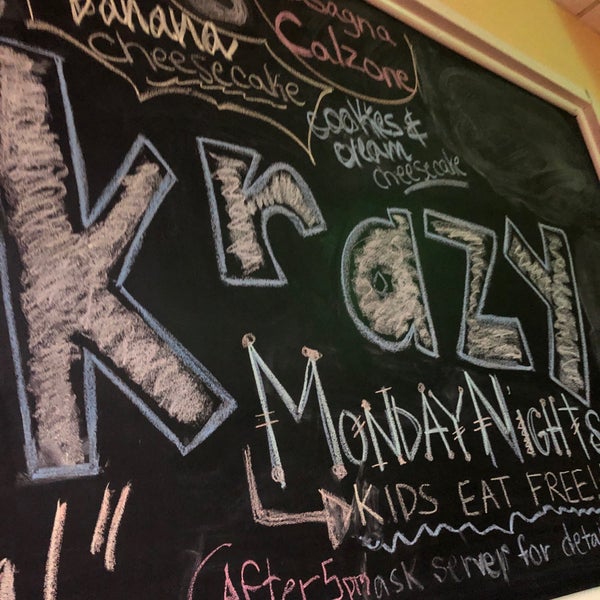 Banana
cheesecake
Calzone
cookies &
cream
cheesecake
Krazy
Monday Nights
KIDS EAT FREE!!
After 5pm ask server for